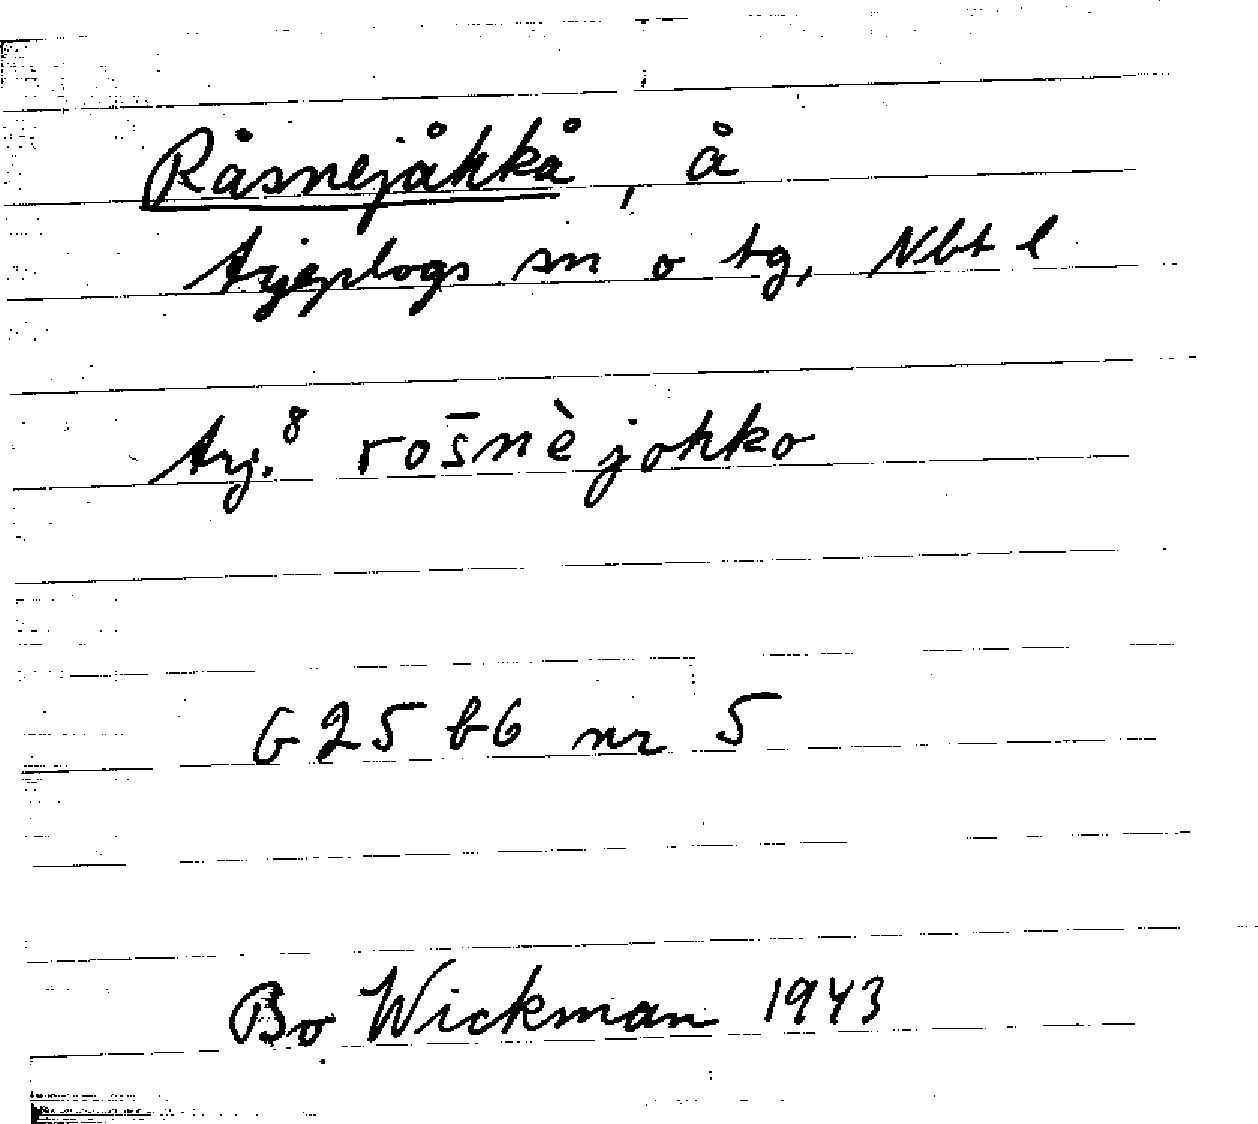 Råsnejåkkå, å
Arjeplogs sn o tg, Nbt l
Arj.⁸ ros̄nèjohko
G 25 b6 nr 5
Bo Wickman 1943